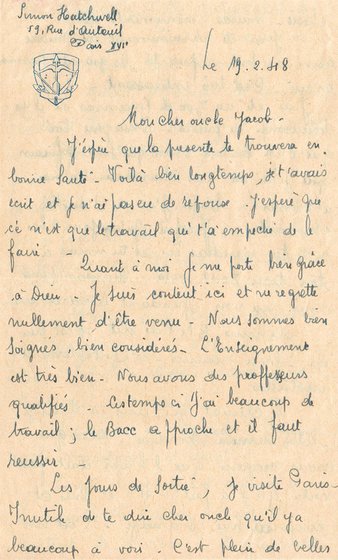 Simon Hatchwell
59, Rue d'Auteuil
Paris XVIe
Le 19.2.48
Mon cher oncle Jacob -
J'éspère que la présente te trouvera en
bonne Santé - Voilà bien longtemps, je t'avais
écrit et je n'ai pas eu de reponse. J'espéré que
ce n'est que le travail qui t'a empeché de le
faire -
Quant à moi Je me porte bien grâce
à Dieu - Je suis content ici et ne regrette
nullement d'être venu - Nous sommes bien
Soignés, bien considérés - L'Enseignement
est très bien - Nous avons des proffesseurs
qualifiés - Ces temps ci J'ai beaucoup de
travail ; le Bacc approche et il faut
reussir -
Les Jours de Sortie, Je visite Paris -
Inutile de te dire cher oncle qu'il y a
beaucoup à voir. C'est plein de belles